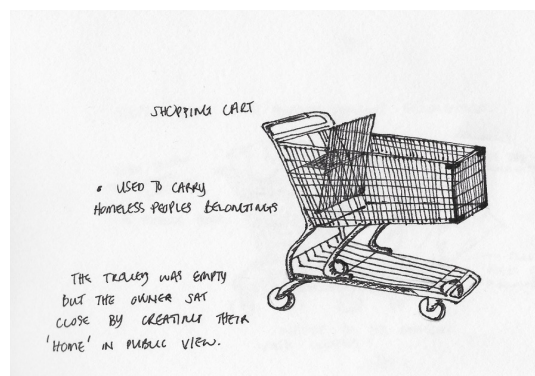 SHOPPING CART
• USED TO CARRY
HOMELESS PEOPLES BELONGINGS
THE TROLLEY WAS EMPTY
BUT THE OWNER SAT
CLOSE BY CREATING THEIR
'HOME' IN PUBLIC VIEW.